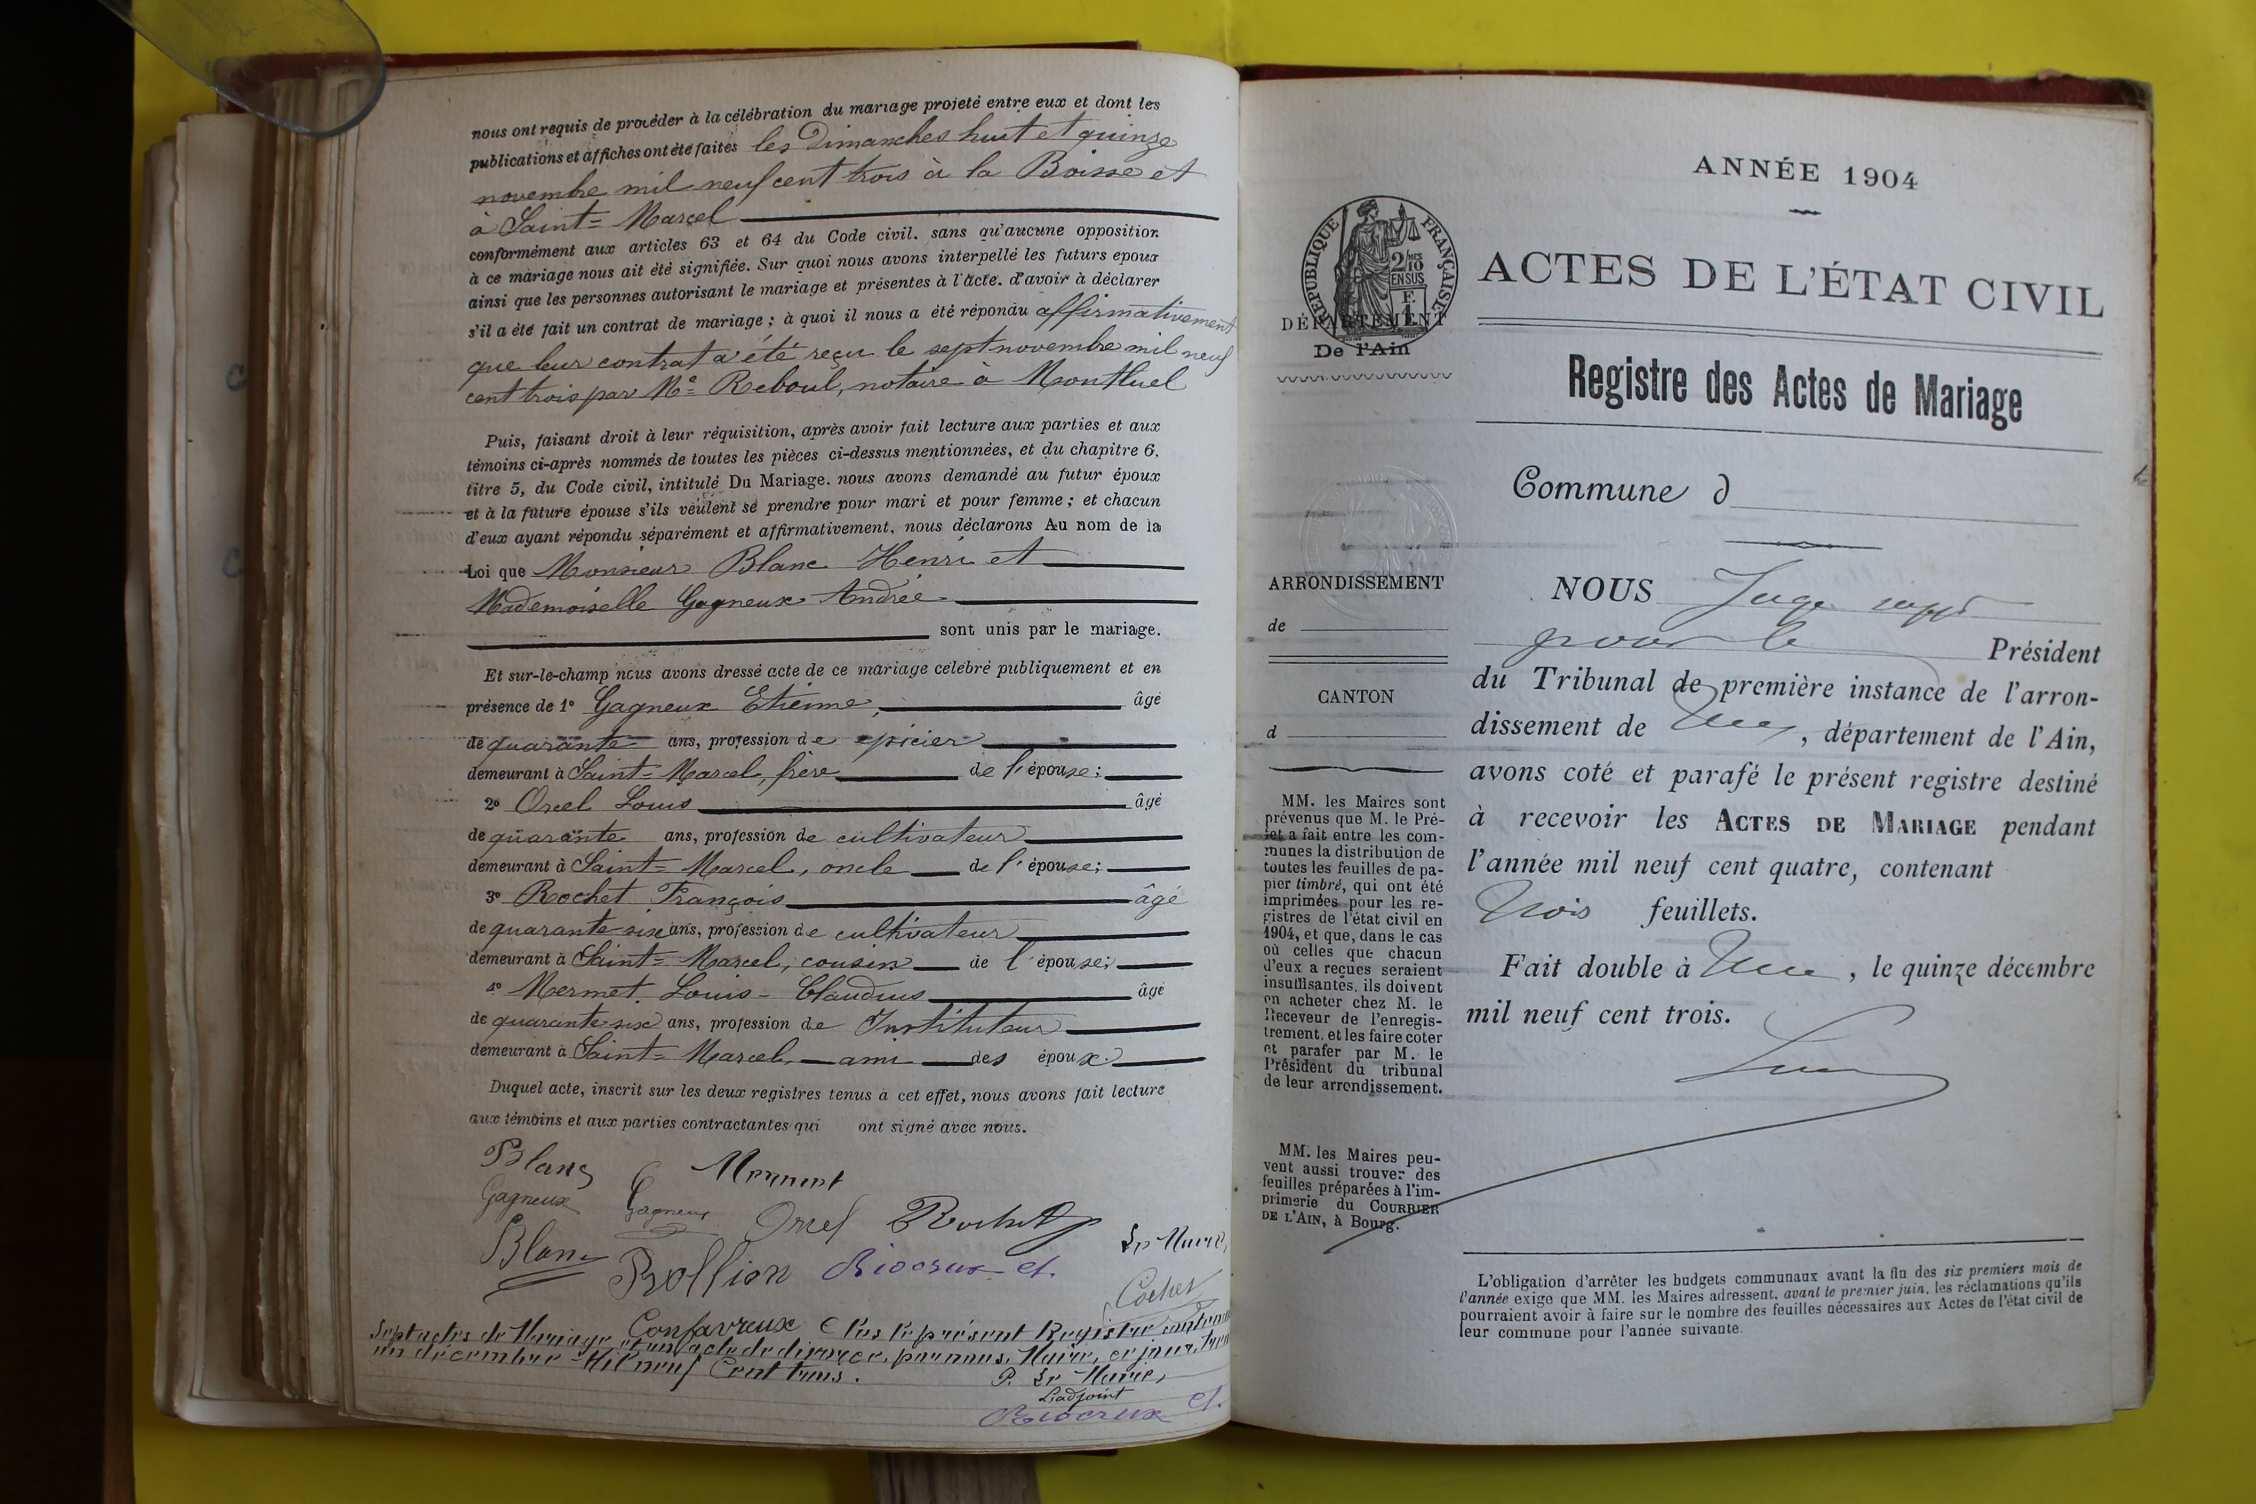 nous ont requis de procéder à la célébration du mariage projeté entre eux et dont les
publications et affiches ont été faites les Dimanches huit et quinze
novembre mil neuf cent trois à la Boisse et
à Saint-Marcel
conformément aux articles 63 et 64 du Code civil. sans qu'aucune opposition
à ce mariage nous ait été signifiée. Sur quoi nous avons interpellé les futurs epoux
ainsi que les personnes autorisant le mariage et présentes à l'acte. d'avoir à déclarer
s'il a été fait un contrat de mariage ; à quoi il nous a été répondu affirmativement
que leur contrat a été reçu le sept novembre mil neuf
cent trois par Me Reboul, notaire à Montluel
Puis, faisant droit à leur réquisition, après avoir fait lecture aux parties et aux
témoins ci-après nommés de toutes les pièces ci-dessus mentionnées, et du chapitre 6,
titre 5, du Code civil, intitulé Du Mariage. nous avons demandé au futur époux
et à la future épouse s'ils veulent se prendre pour mari et pour femme ; et chacun
d'eux ayant répondu séparément et affirmativement, nous déclarons Au nom de la
Loi que Monsieur Blanc Henri et
Mademoiselle Gagneux Andrée
sont unis par le mariage.
Et sur-le-champ nous avons dressé acte de ce mariage célébré publiquement et en
présence de 1° Gagneux Etienne, âgé
de quarante ans, profession de épicier
demeurant à Saint-Marcel, frère de l'épouse;
2° Orsel Louis âgé
de quarante ans, profession de cultivateur
demeurant à Saint-Marcel, oncle de l'épouse;
3° Rochet François âgé
de quarante-six ans, profession de cultivateur
demeurant à Saint-Marcel, cousin de l'épouse;
4° Mermet Louis-Claudius âgé
de quarante-six ans, profession de Instituteur
demeurant à Saint-Marcel, ami des époux.
Duquel acte, inscrit sur les deux registres tenus à cet effet, nous avons fait lecture
aux témoins et aux parties contractantes qui ont signé avec nous.
Blanc Mermet
Gagneux Gagneux Orsel Rochet
Le Maire,
Blanc Rollion Riocreux Cl.
Cochet
Confavreux Clos le présent Registre contenant
Sept actes de Mariage et un acte de divorce, par nous, Maire, ce jour, trente
un décembre Mil neuf Cent trois.
P. Le Maire,
L'adjoint
Riocreux Cl.
ANNÉE 1904
RÉPUBLIQUE FRANÇAISE
2/10 EN SUS
F. 1
ACTES DE L'ÉTAT CIVIL
DÉPARTEMENT
De l'Ain
Registre des Actes de Mariage
Commune d
ARRONDISSEMENT
de
CANTON
d
MM. les Maires sont
prévenus que M. le Pré-
fet a fait entre les com-
munes la distribution de
toutes les feuilles de pa-
pier timbré, qui ont été
imprimées pour les re-
gistres de l'état civil en
1904, et que, dans le cas
où celles que chacun
d'eux a reçues seraient
insuffisantes, ils doivent
en acheter chez M. le
Receveur de l'enregis-
trement, et les faire coter
et parafer par M. le
Président du tribunal
de leur arrondissement.
MM. les Maires peu-
vent aussi trouver des
feuilles préparées à l'im-
primerie du COURRIER
DE L'AIN, à Bourg.
NOUS Juge supp
pour le Président
du Tribunal de première instance de l'arron-
dissement de , département de l'Ain,
avons coté et parafé le présent registre destiné
à recevoir les ACTES DE MARIAGE pendant
l'année mil neuf cent quatre, contenant
trois feuillets.
Fait double à , le quinze décembre
mil neuf cent trois.
L'obligation d'arrêter les budgets communaux avant la fin des six premiers mois de
l'année exige que MM. les Maires adressent, avant le premier juin, les réclamations qu'ils
pourraient avoir à faire sur le nombre des feuilles nécessaires aux Actes de l'état civil de
leur commune pour l'année suivante.